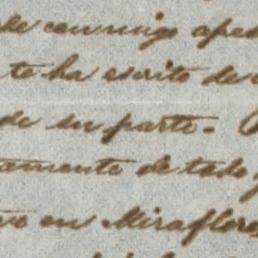 de conmigo apes
te ha escrito de
de su parte.
amente de todo y
ve en Miraflores